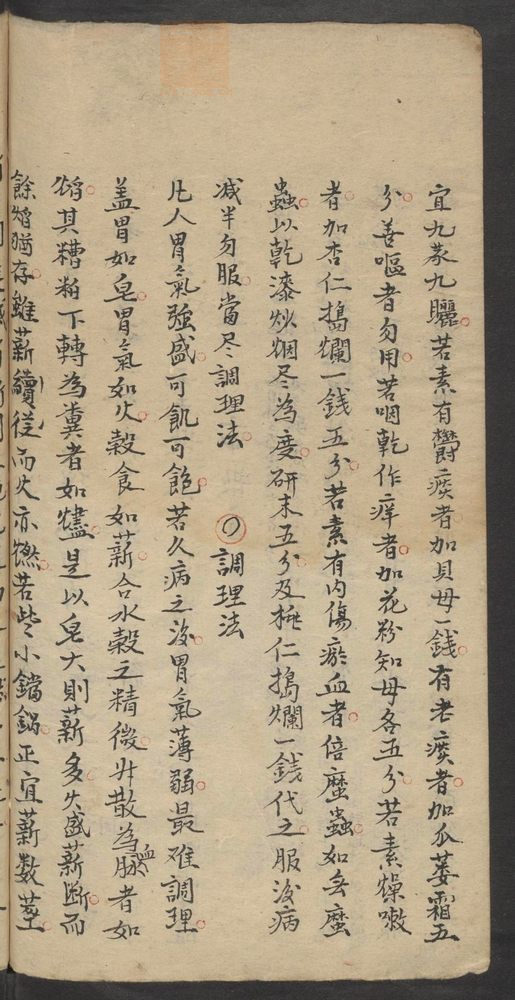 宜九蒸九曬若素有鬱痰者加貝母一錢有老痰者加瓜蔞霜五
分善嘔者勿用若咽乾作痒者加花粉知母各五分若素燥嗽
者加杏仁搗爛一錢五分若素有内傷瘀血者倍䗪蟲如無䗪
蟲以乾漆炒烟尽為度研末五分及桃仁搗爛一錢代之服後病
减半勿服當尽調理法
〇調理法
凡人胃氣強盛可飢可飽若久病之後胃氣薄弱最难調理
盖胃如皂胃氣如火穀食如薪合水穀之精微升散為血脉者如
焰其糟粕下轉為糞者如燼是以皂大則薪多火盛薪断而
餘焰猶存雖薪續從而火亦燃若些小鐺鍋正宜薪数莖